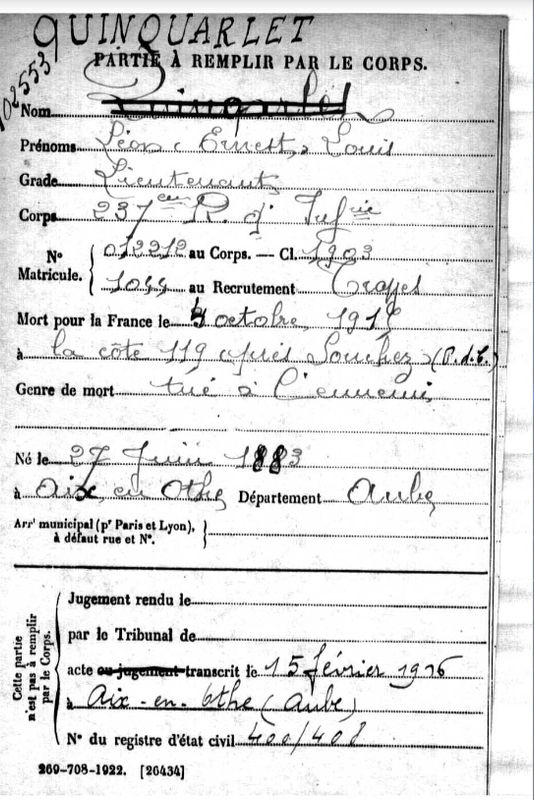 QUINQUARLET
PARTIE À REMPLIR PAR LE CORPS.
102553
Nom
Prénoms Léon Ernest Louis
Grade Lieutenant
Corps 237eme R. d' Infrie
No Matricule. 012212 au Corps. — Cl. 1903
1044 au Recrutement Troyes
Mort pour la France le 4 octobre 1915
à la côte 119 (près Souchez) (P.d.C.)
Genre de mort tué à l'ennemi
Né le 27 Juin 1883
à Aix en Othe Département Aube
Arrt municipal (pr Paris et Lyon),
à défaut rue et No.
Cette partie
n'est pas à remplir
par le Corps.
Jugement rendu le
par le Tribunal de
acte ou jugement transcrit le 15 février 1916
à Aix-en-Othe (Aube)
No du registre d'état civil 400/408
269-708-1922. [26434]